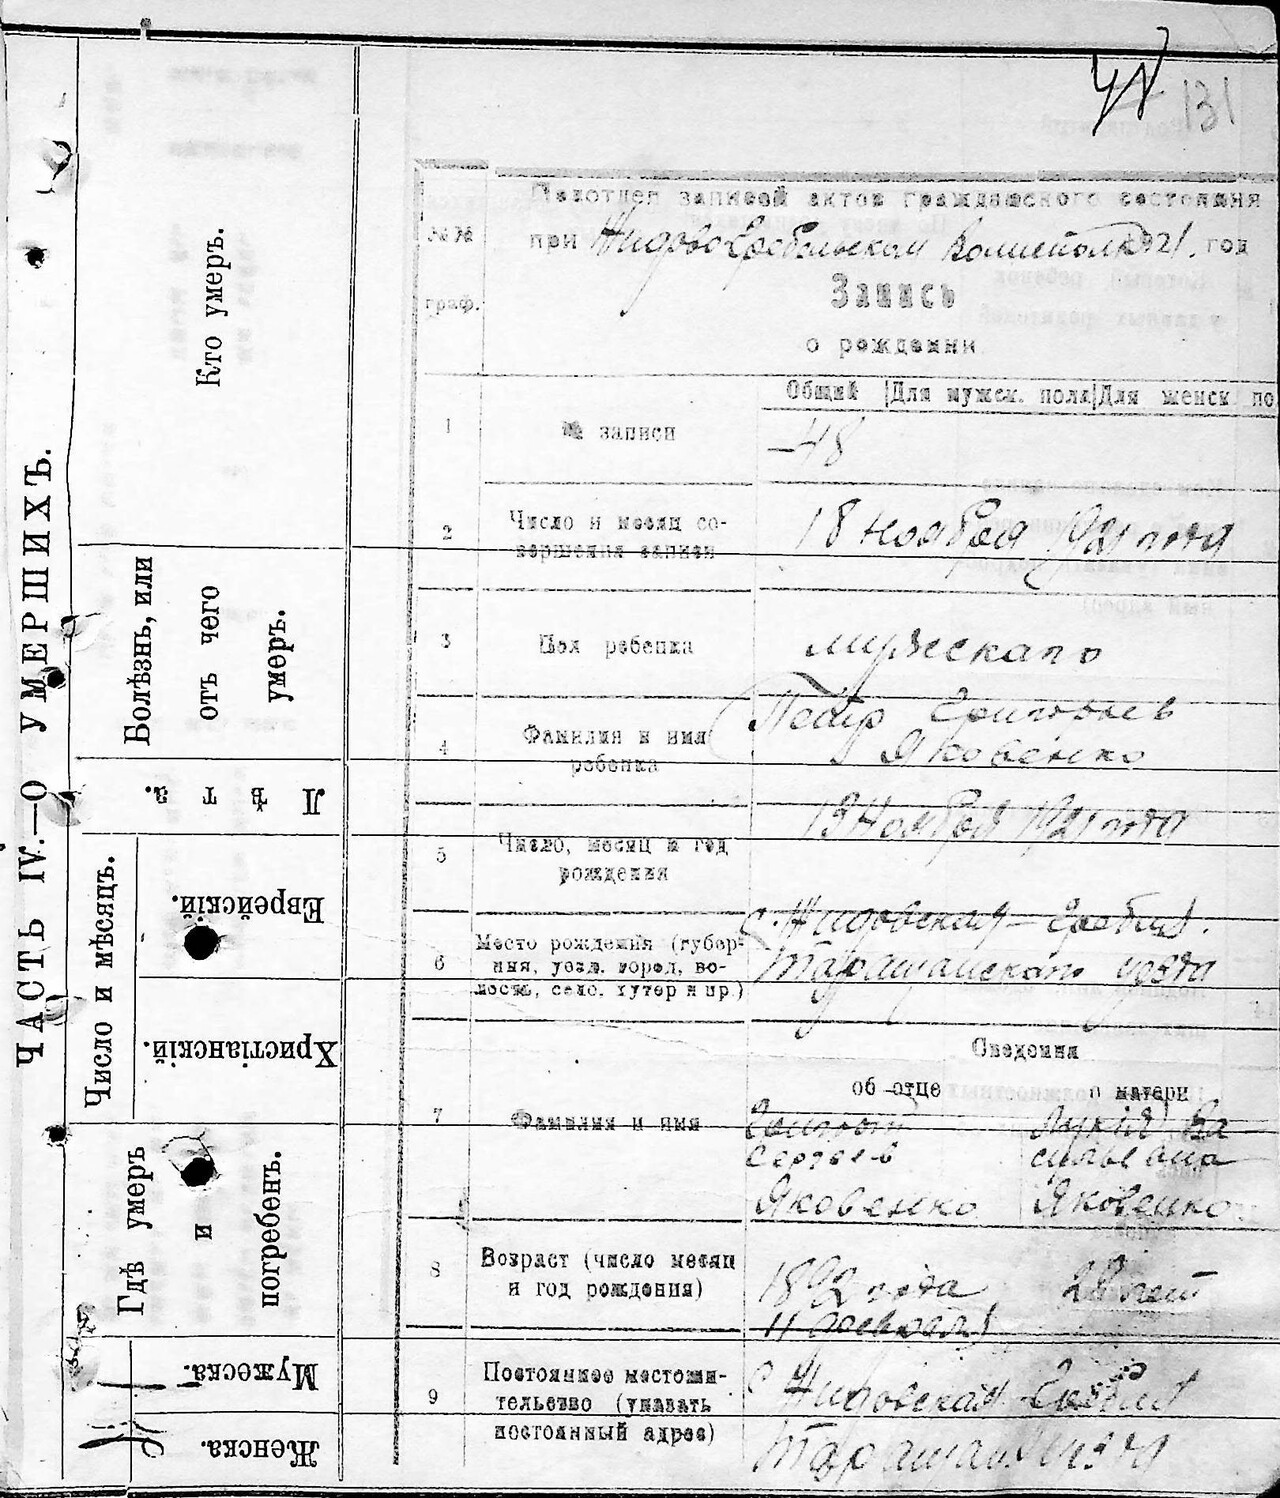 131
ЧАСТЬ IV.—О УМЕРШИХЪ.
Кто умеръ.
Болѣзнь, или
отъ чего
умеръ.
Лѣта.
Число и мѣсяцъ.
Еврейскій.
Христіанскій.
Гдѣ умеръ
и
погребенъ.
Мужеска.
Женска.
№№
граф.
Подотдел записей актов гражданского состояния
при Жидовогребельском Волисполк 1921. год
Запись
о рождении
Общий Для мужск. пола Для женск по
1 № записи
48
2 Число и месяц со-
вершения записи
18 ноября 1921 года
3 Пол ребенка
мужескаго
4 Фамилия и имя
ребенка
Петр Григорьев
Яковенко
5 Число, месяц и год
рождения
13 Ноября 1921 года
6 Место рождения (губер-
ния, уезд, город, во-
лость, село, хутор и пр.)
с. Жидовская-Гребля.
Таращанскаго уезда
Сведения
об отце о матери
7 Фамилия и имя
Григорий Лукия Ва
Сергеев сильевна
Яковенко Яковенко
8 Возраст (число месяц
и год рождения)
1892 года лет
11 февраля
9 Постоянное местожи-
тельство (указать
постоянный адрес)
с Жидовская Гребля
Таращан. уезда